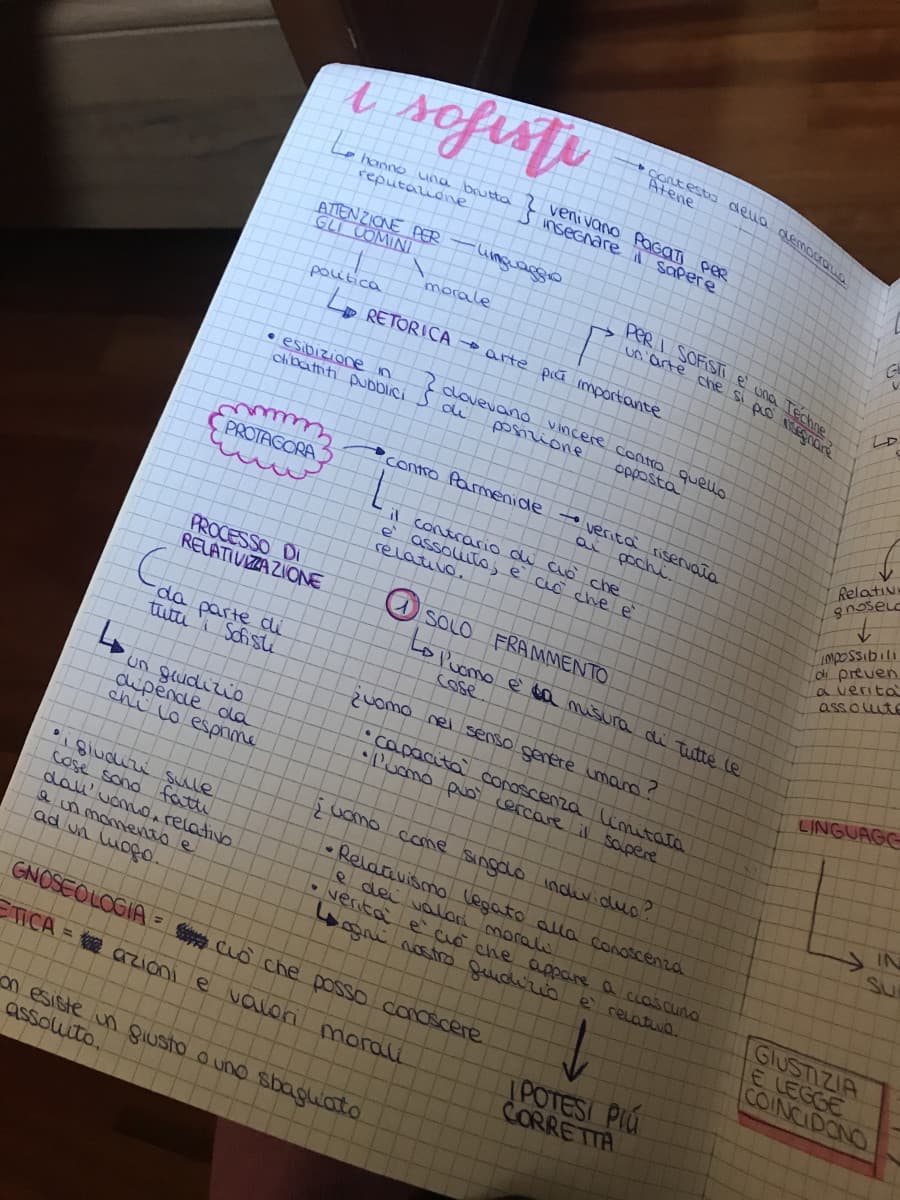 i sofisti
→ contesto della democrazia
Atene
↳ hanno una brutta
reputazione
} venivano PAGATI PER
insegnare il sapere
ATTENZIONE PER
GLI UOMINI
— linguaggio
politica
morale
↳ RETORICA → arte più importante
PER I SOFISTI è una Techne,
un'arte che si può insegnare
• esibizione in
dibattiti pubblici
} dovevano vincere contro quello
di posizione opposta
PROTAGORA
→ contro Parmenide → verità riservata
ai pochi.
il contrario di ciò che
è assoluto, è ciò che è
relativo.
PROCESSO DI
RELATIVIZZAZIONE
da parte di
tutti i Sofisti
↳ un giudizio
dipende da
chi lo esprime
• i giudizi sulle
cose sono fatti
dall'uomo, relativo
a un momento e
ad un luogo.
① SOLO FRAMMENTO
↳ l'uomo è la misura di tutte le
cose
¿uomo nel senso genere umano?
• capacità conoscenza limitata
• l'uomo può cercare il sapere
¿uomo come singolo individuo?
• Relativismo legato alla conoscenza
e dei valori morali
• verità è ciò che appare a ciascuno
↳ ogni nostro giudizio è relativo
IPOTESI PIÚ
CORRETTA
GNOSEOLOGIA = ciò che posso conoscere
ETICA = azioni e valori morali
on esiste un giusto o uno sbagliato
assoluto.
Relativ
gnoseo
↓
impossibili
di preven
a verità
assoluta
LINGUAGG
IN
SU
GIUSTIZIA
E LEGGE
COINCIDONO